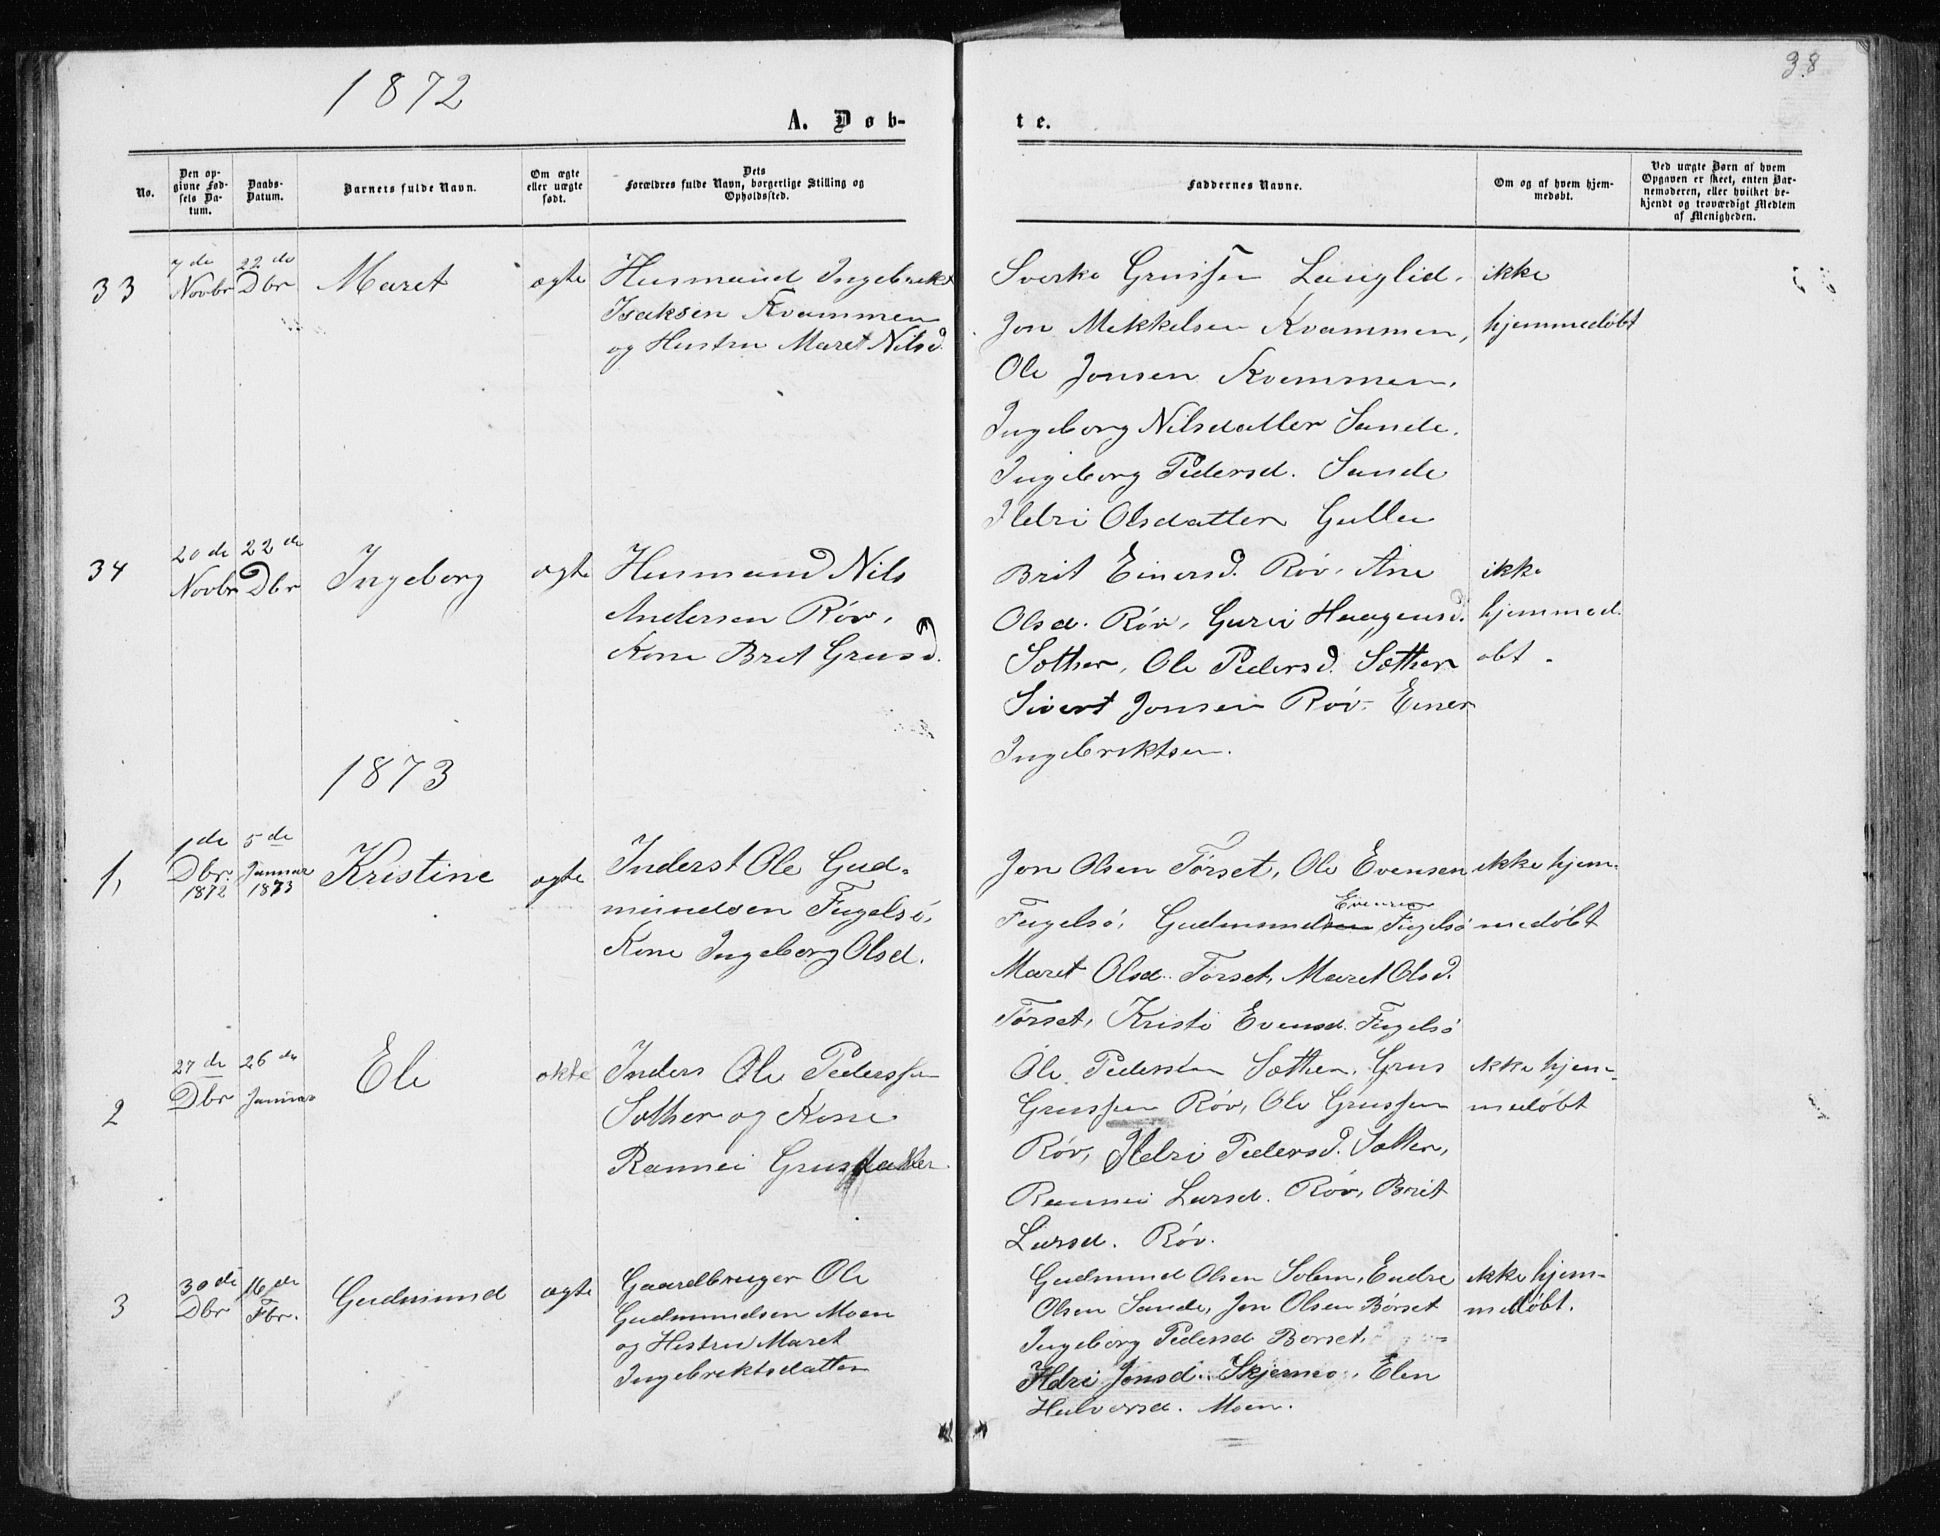 1872
38
A. Døb-
te.
No.
Den op-
givne Fød-
sels Da-
tum.
Daabs-
Datum.
Barnets fulde Navn.
Om ægte
eller uægte
født.
Dets
Forældres fulde Navn, borgerlige Stilling og
Opholdssted.
Faddernes Navne.
Om og af hvem hjem-
medøbt.
Ved uægte Børn af hvem
Opgaven er skeet, enten Bar-
nemoderen, eller hvilket be-
kjendt og troværdigt Medlem
af Menigheden.
33
7de
Novbr
22de
Dbr
Maret
ægte
Husmand Ingebrikt
Isaksen Kvammen
og Hustru Maret Nilsd.
Sverke Grussen Langlid.
Jon Mekkelsen Kvammen,
Ole Jonsen Kvammen.
Ingeborg Nilsdatter Sande.
Ingeborg Pedersd. Sande
Ildri Olsdatter Gulle
ikke
hjemmedøbt
34
20de
Novbr
22de
Dbr
Ingeborg
ægte
Husmand Nils
Andersen Røv,
Kone Brit Grusd.
Brit Einersd. Røv, Ane
Olsd. Røv, Guri Haagensd.
Sæther, Ole Pedersd. Sæther
Sivert Jonsen Røv, Einer
Ingebriktsen.
ikke
hjemmed.
øbt.
1873
1,
1de
Dbr.
1872
5de
Januar
1873
Kristine
ægte
Inderst Ole Gud-
mundsen Fugelsø,
Kone Ingeborg Olsd.
Jon Olsen Tørset, Ole Evensen
Evensen
Fugelsø, Gudmundsen Fugelsø
Maret Olsd. Tørset, Maret Olsd.
Tørset, Kristi Evensd. Fugelsø
ikke hjem-
medøbt
2
27de
Dbr
26de
Januar
Eli
ekte
Inders Ole Pederssen
Sæther og Kone
Rannei Grusdatter
Ole Pedersen Sæther, Grus
Grussen Røv, Ole Grussen
Røv, Ildri Pedersd. Sæther,
Rannei Larsd. Røv, Brit
Larsd. Røv.
ikke hjem-
medøbt
3
30de
Dbr
16de
Fbr.
Gudmund
ægte
Gaardbruger Ole
Gudmundsen Moen
og Hustru Maret
Ingebriktsdatter
Gudmund Olsen Solem, Endre
Olsen Sande, Jon Olsen Børset
Ingeborg Pedersd Børset,
Ildri Jonsd. Skjermo, Elen
Halvorsd. Moen.
ikke hjem-
medøbt.